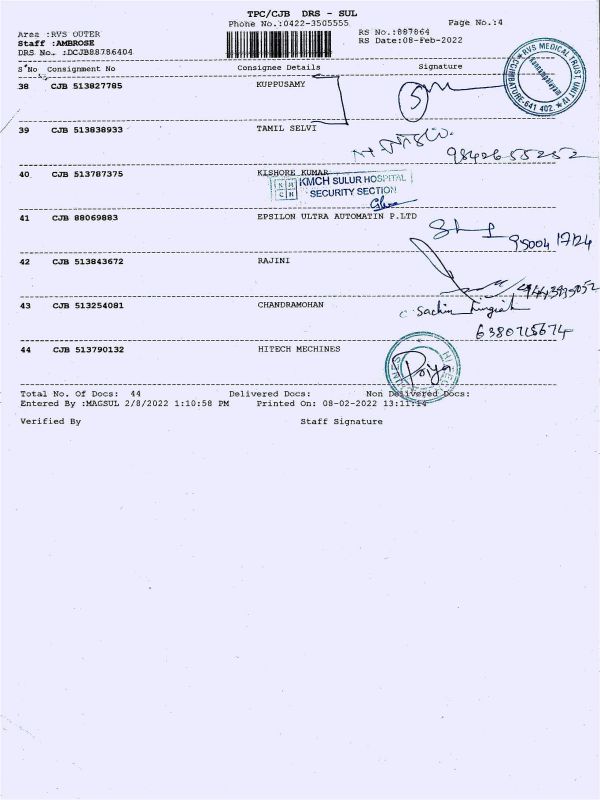 TPC/CJB DRS - SUL
Phone No.:0422-3505555
Page No.:4
Area :RVS OUTER
RS No.:887864
Staff :AMBROSE
RS Date:08-Feb-2022
DRS No. :DCJB88786404
S No Consignment No Consignee Details Signature
RVS MEDICAL TRUST, UNIT
COIMBATORE-641 402
38 CJB 513827785 KUPPUSAMY
39 CJB 513838933 TAMIL SELVI
9842655252
40 CJB 513787375 KISHORE KUMAR
KMCH SULUR HOSPITAL
SECURITY SECTION
41 CJB 88069883 EPSILON ULTRA AUTOMATIN P.LTD
95004 17124
42 CJB 513843672 RAJINI
43 CJB 513254081 CHANDRAMOHAN
Sachin
6380715674
44 CJB 513790132 HITECH MECHINES
Total No. Of Docs: 44 Delivered Docs: Non Delivered Docs:
Entered By :MAGSUL 2/8/2022 1:10:58 PM Printed On: 08-02-2022 13:11:14
Verified By Staff Signature